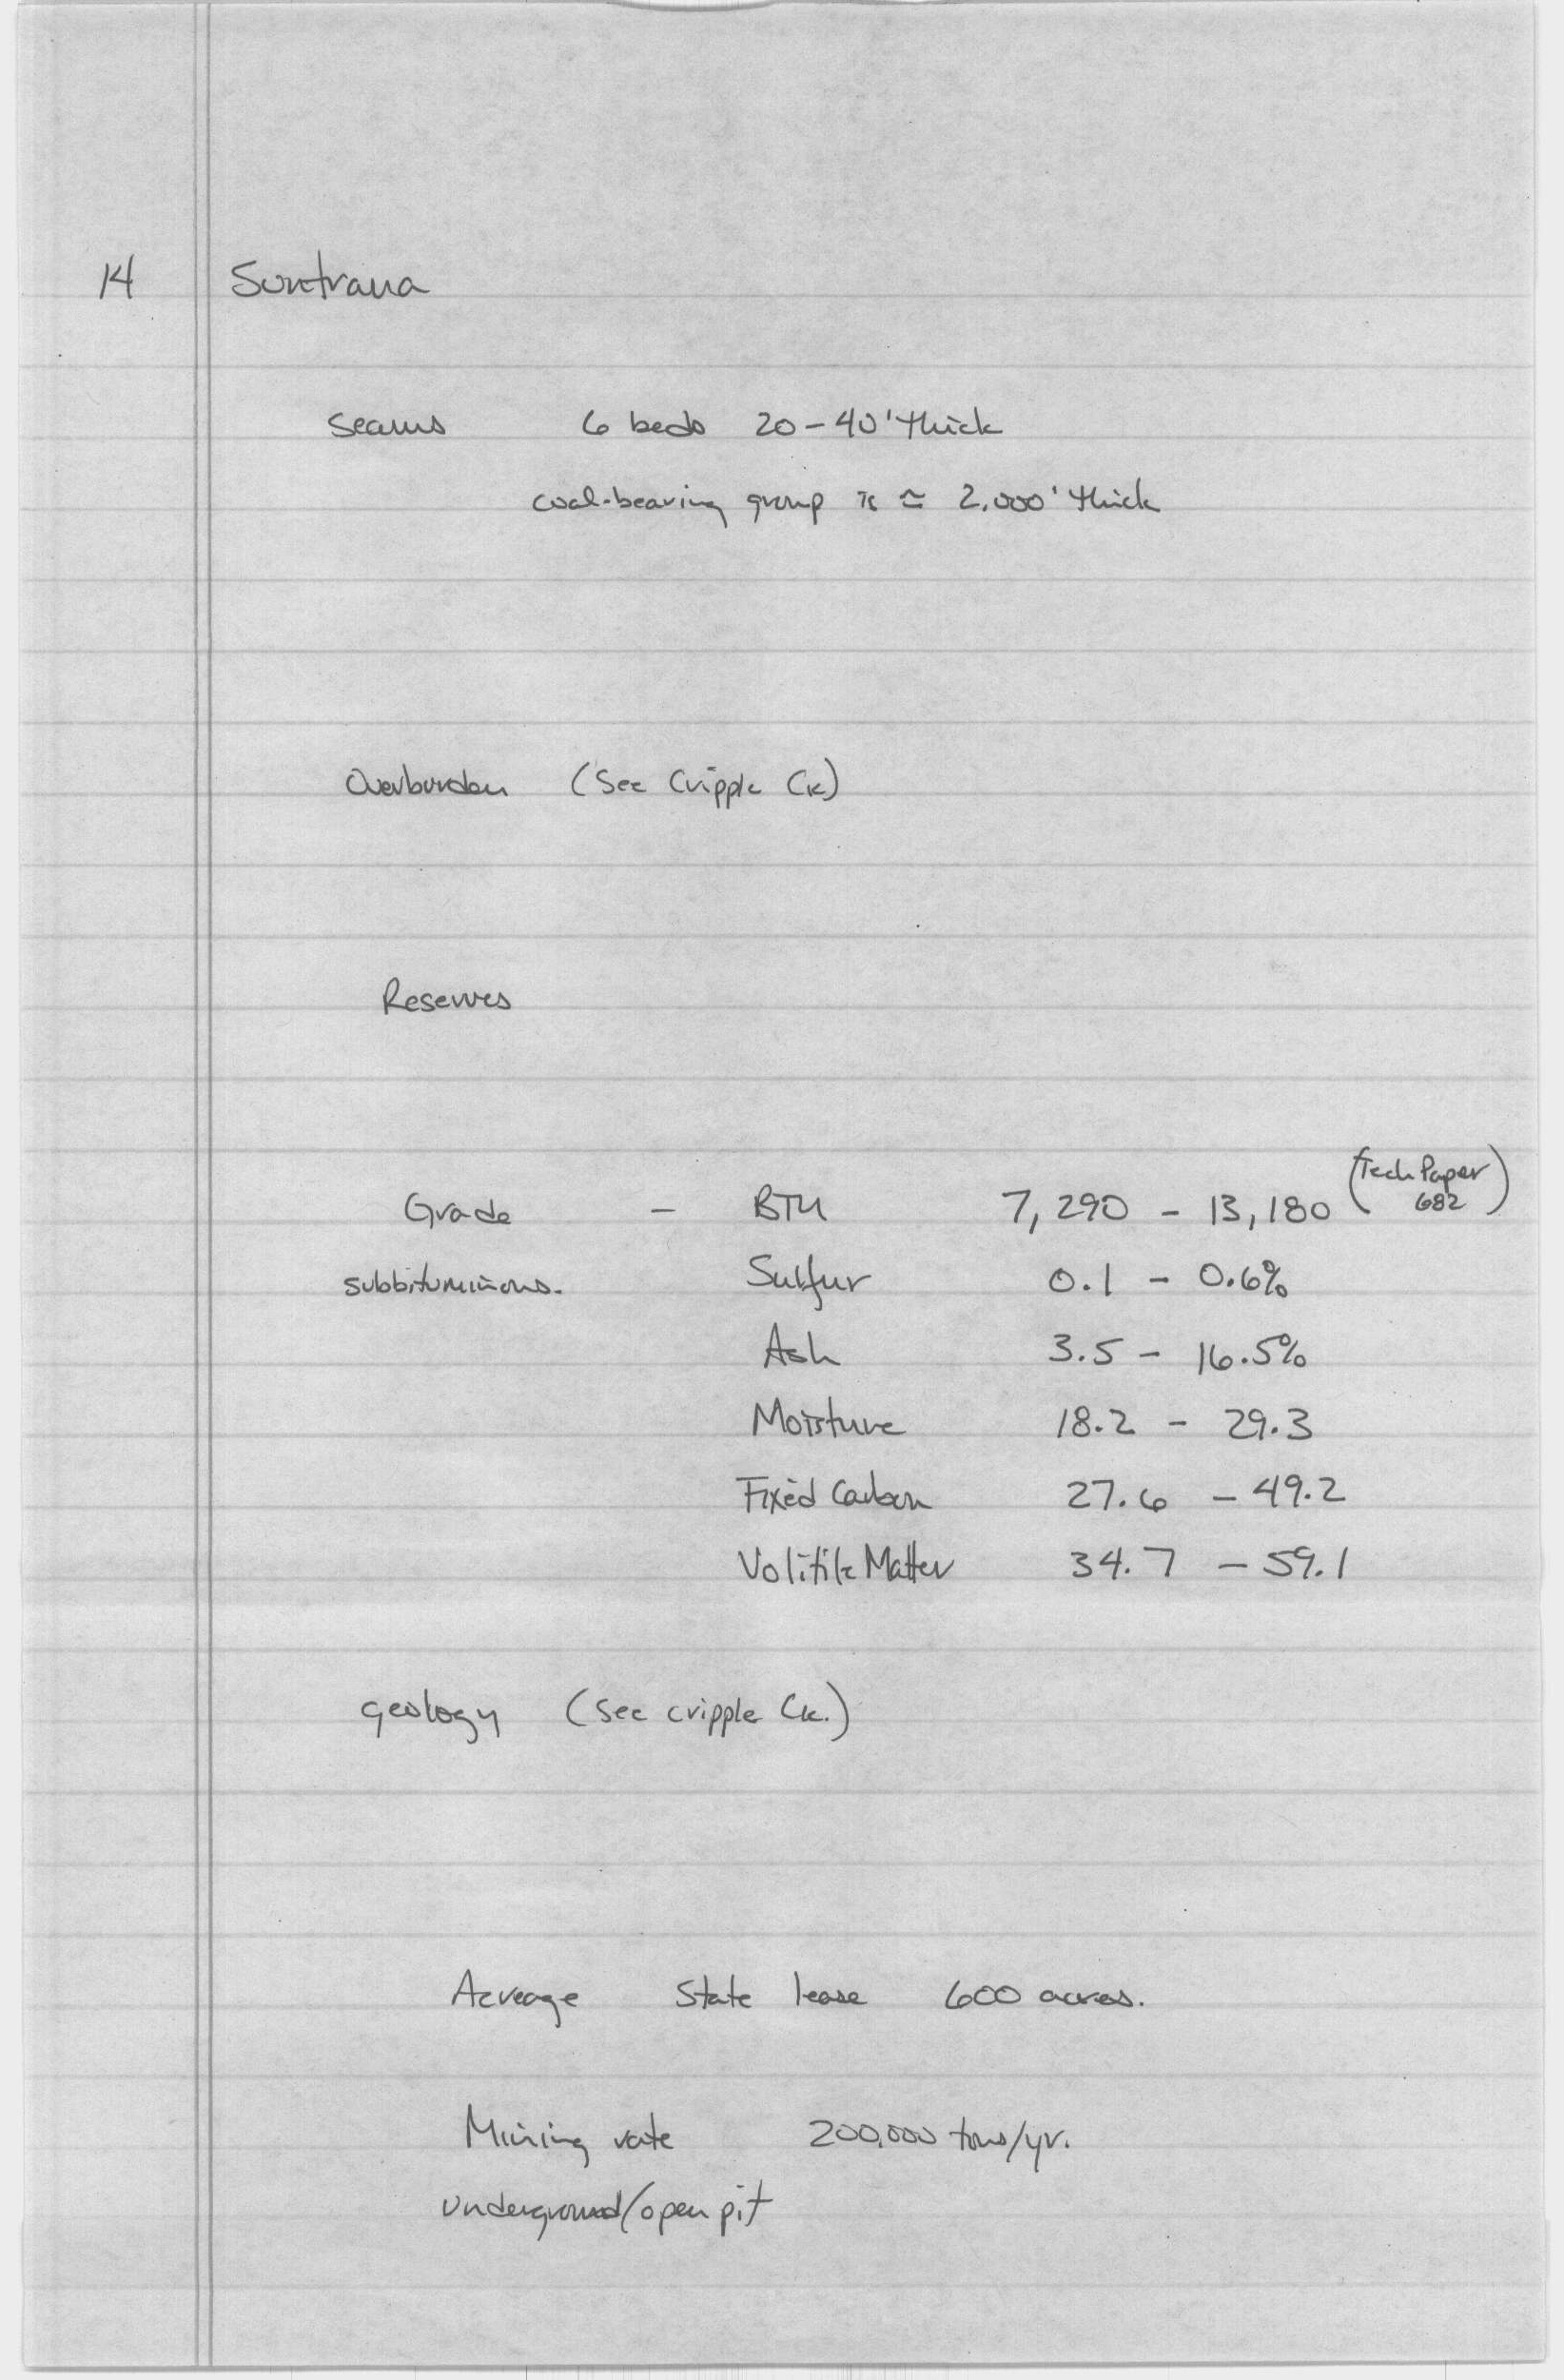 14 Suntrana
Seams 6 beds 20-40' thick
coal-bearing group is ≃ 2,000' thick
Overburden (See Cripple Ck)
Reserves
Grade - BTU 7,290 - 13,180 (Tech Paper 682)
subbituminous. Sulfur 0.1 - 0.6%
Ash 3.5 - 16.5%
Moisture 18.2 - 29.3
Fixed Carbon 27.6 - 49.2
Volitile Matter 34.7 - 59.1
geology (See cripple Ck.)
Acreage State lease 600 acres.
Mining rate 200,000 tons/yr.
Underground/open pit